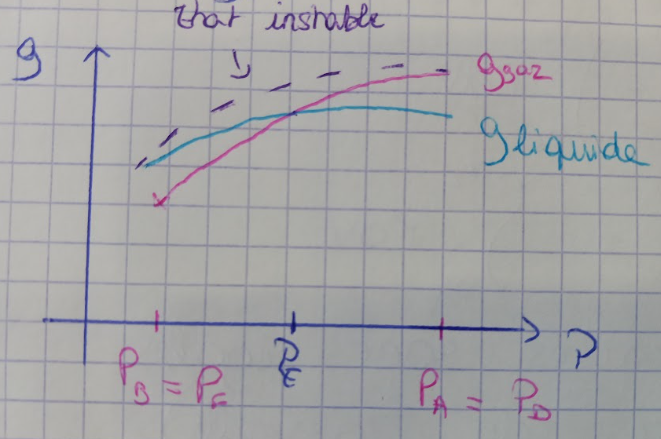 état instable
g
ggaz
gliquide
P
P_B = P_C
P_E
P_A = P_D